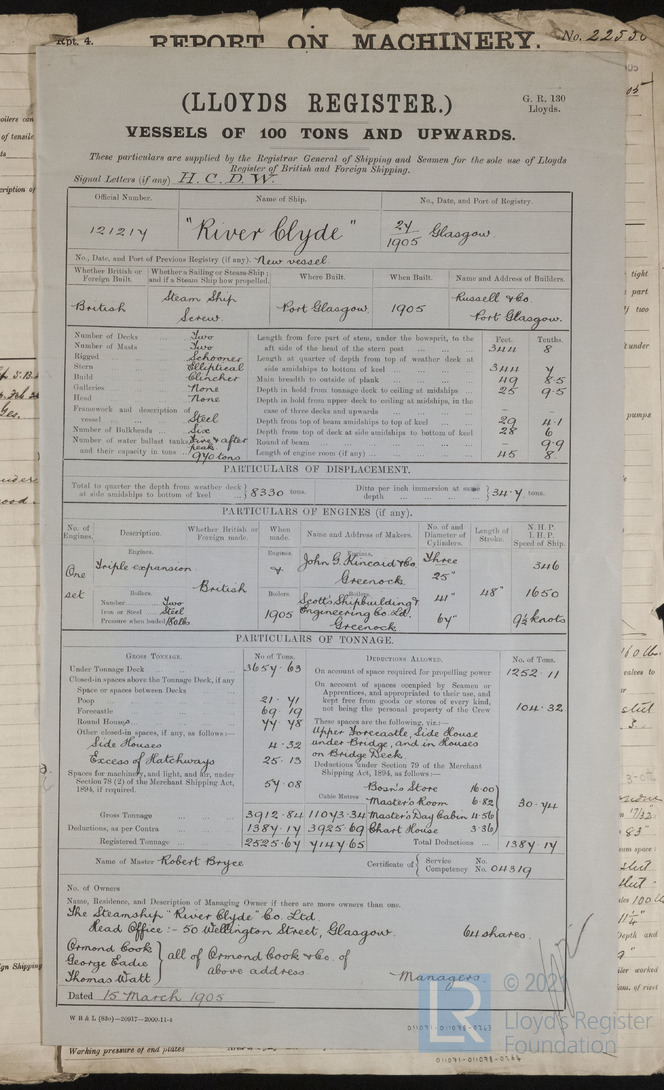 Rpt. 4.
REPORT ON MACHINERY.
No. 22550
(LLOYDS REGISTER.)
G. R. 130
Lloyds.
VESSELS OF 100 TONS AND UPWARDS.
These particulars are supplied by the Registrar General of Shipping and Seamen for the sole use of Lloyds
Register of British and Foreign Shipping.
Signal Letters (if any) H. C. D. W.
Official Number. Name of Ship. No., Date, and Port of Registry.
121217 "River Clyde" 27/1905 Glasgow
No., Date, and Port of Previous Registry (if any). New vessel
Whether British or Foreign Built. Whether a Sailing or Steam Ship; and if a Steam Ship how propelled. Where Built. When Built. Name and Address of Builders.
British Steam Ship Screw. Port Glasgow. 1905 Russell & Co. Port Glasgow.
Feet. Tenths.
Number of Decks Two
Number of Masts Two
Rigged Schooner
Stern Elliptical
Build Clincher
Galleries None
Head None
Framework and description of vessel Steel
Number of Bulkheads Six
Number of water ballast tanks and their capacity in tons Five & after peak 970 tons
Length from fore part of stem, under the bowsprit, to the aft side of the head of the stern post 344 8
Length at quarter of depth from top of weather deck at side amidships to bottom of keel 344 7
Main breadth to outside of plank 49 8.5
Depth in hold from tonnage deck to ceiling at midships 25 9.5
Depth in hold from upper deck to ceiling at midships, in the case of three decks and upwards - -
Depth from top of beam amidships to top of keel 29 4.1
Depth from top of deck at side amidships to bottom of keel 28 6
Round of beam 9.9
Length of engine room (if any) 45 8
PARTICULARS OF DISPLACEMENT.
Total to quarter the depth from weather deck at side amidships to bottom of keel 8330 tons.
Ditto per inch immersion at same depth 34.7 tons.
PARTICULARS OF ENGINES (if any).
No. of Engines. Description. Whether British or Foreign made. When made. Name and Address of Makers. No. of and Diameter of Cylinders. Length of Stroke. N.H.P. I.H.P. Speed of Ship.
Engines. Engines. Engines.
One set Triple expansion British & John G. Kincaid & Co. Greenock Three 25" 41" 67" 48" 346 1650 9½ knots
Boilers. Boilers. Boilers.
Number Two
Iron or Steel Steel
Pressure when loaded 180 lbs
1905 Scott's Shipbuilding & Engineering Co. Ld. Greenock
PARTICULARS OF TONNAGE.
GROSS TONNAGE. No. of Tons. DEDUCTIONS ALLOWED. No. of Tons.
Under Tonnage Deck 3657.63
Closed-in spaces above the Tonnage Deck, if any
Space or spaces between Decks
Poop 21.71
Forecastle 69.19
Round House 77.78
Other closed-in spaces, if any, as follows:—
Side Houses 4.32
Excess of Hatchways 25.13
Spaces for machinery, and light, and air, under Section 78 (2) of the Merchant Shipping Act, 1894, if required. 57.08
Gross Tonnage 3912.84 11073.34
Deductions, as per Contra 1387.17 3925.69
Registered Tonnage 2525.67 7147.65
Cubic Metres
On account of space required for propelling power 1252.11
On account of spaces occupied by Seamen or Apprentices, and appropriated to their use, and kept free from goods or stores of every kind, not being the personal property of the Crew 104.32
These spaces are the following, viz.:—
Upper Forecastle, Side House under Bridge, and in Houses on Bridge Deck.
Deductions under Section 79 of the Merchant Shipping Act, 1894, as follows:—
Bosn's Store 16.00
Master's Room 6.82
Master's Day Cabin 4.56
Chart House 3.36
30.74
Total Deductions 1387.17
Name of Master Robert Bryce
Certificate of Service No.
Competency No. 04319
No. of Owners
Name, Residence, and Description of Managing Owner if there are more owners than one.
The Steamship "River Clyde" Co. Ltd.
Head Office :- 50 Wellington Street, Glasgow. 64 shares.
Ormond Cook
George Eadie
Thomas Watt
all of Ormond Cook & Co. of above address
Managers.
Dated 15 March 1905
W B & L (83o)—20917—2000-11-4
011071-011078-0263
© 2021
LR
Lloyd's Register
Foundation
Working pressure of end plates
011071-011078-0264